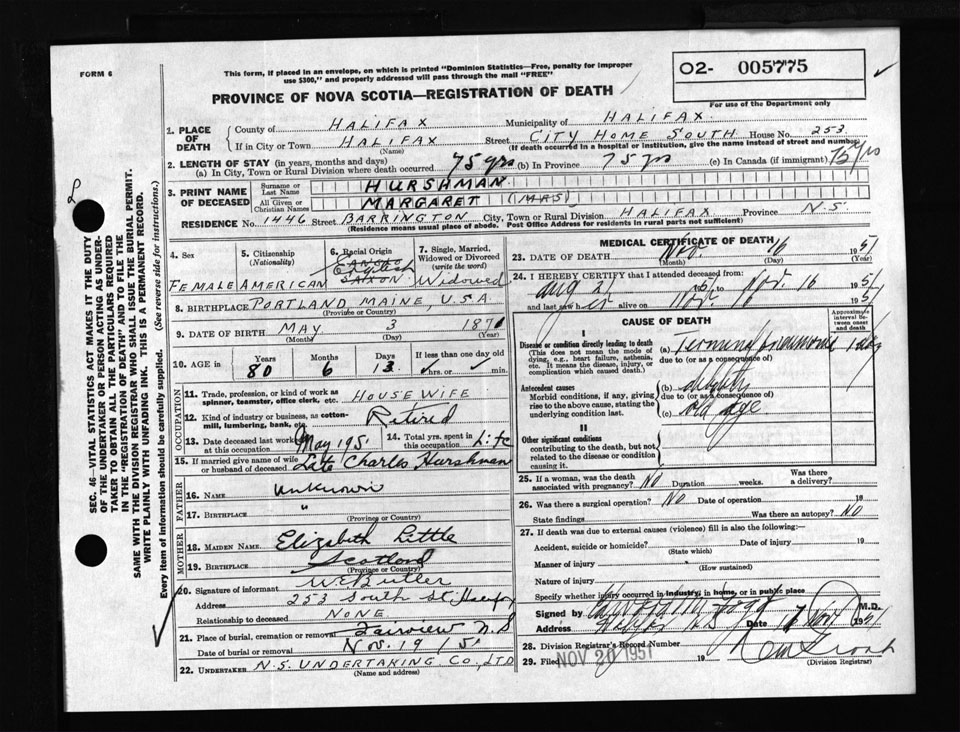 FORM 6
This form, if placed in an envelope, on which is printed "Dominion Statistics—Free, penalty for improper
use $300," and properly addressed will pass through the mail "FREE"
O2- 005775
For use of the Department only
PROVINCE OF NOVA SCOTIA—REGISTRATION OF DEATH
1. PLACE OF DEATH
County of HALIFAX Municipality of HALIFAX
If in City or Town HALIFAX Street CITY HOME SOUTH House No. 253
(Name) (If death occurred in a hospital or institution, give the name instead of street and number)
2. LENGTH OF STAY (in years, months and days)
(a) In City, Town or Rural Division where death occurred 75 yrs (b) In Province 75 yrs (c) In Canada (if immigrant) 75 yrs
3. PRINT NAME OF DECEASED
Surname or Last Name HURSHMAN
All Given or Christian Names MARGARET (MRS)
RESIDENCE No. 1446 Street BARRINGTON City, Town or Rural Division HALIFAX Province N.S.
(Residence means usual place of abode. Post Office Address for residents in rural parts not sufficient)
4. Sex
5. Citizenship (Nationality)
6. Racial Origin
7. Single, Married, Widowed or Divorced (write the word)
FEMALE AMERICAN English SAXON Widowed
8. BIRTHPLACE PORTLAND MAINE, U.S.A.
(Province or Country)
9. DATE OF BIRTH MAY 3 1871
(Month) (Day) (Year)
10. AGE in Years Months Days If less than one day old
80 6 13 hrs. or min.
OCCUPATION
11. Trade, profession, or kind of work as spinner, teamster, office clerk, etc. HOUSEWIFE
12. Kind of industry or business, as cotton-mill, lumbering, bank, etc. Retired
13. Date deceased last worked at this occupation May 1951
14. Total yrs. spent in this occupation Life
15. If married give name of wife or husband of deceased Late Charles Hurshman
FATHER
16. NAME Unknown
17. BIRTHPLACE "
(Province or Country)
MOTHER
18. MAIDEN NAME Elizabeth Little
19. BIRTHPLACE Scotland
(Province or Country)
20. Signature of informant W E Butler
Address 253 South St. Halifax
Relationship to deceased NONE
21. Place of burial, cremation or removal Fairview N.S
Date of burial or removal NOV. 19 1951
22. UNDERTAKER N.S. UNDERTAKING CO., LTD
(Name and address)
MEDICAL CERTIFICATE OF DEATH
23. DATE OF DEATH Nov. 16 1951
(Month) (Day) (Year)
24. I HEREBY CERTIFY that I attended deceased from
Aug 21 1951 to Nov. 16 1951
and last saw her alive on Nov. 16 1951
CAUSE OF DEATH
Approximate interval Between onset and death
I
Disease or condition directly leading to death
(This does not mean the mode of dying, e.g., heart failure, asthenia, etc. It means the disease, injury, or complication which caused death.)
(a) Terminal pneumonia 1 day
due to (or as a consequence of)
Antecedent causes
Morbid conditions, if any, giving rise to the above cause, stating the underlying condition last.
(b) debility
due to (or as a consequence of)
(c) old age
II
Other significant conditions
contributing to the death, but not related to the disease or condition causing it.
25. If a woman, was the death associated with pregnancy? NO Duration weeks. Was there a delivery?
26. Was there a surgical operation? NO Date of operation 19
State findings Was there an autopsy? NO
27. If death was due to external causes (violence) fill in also the following:—
Accident, suicide or homicide? Date of injury 19
(State which)
Manner of injury
(How sustained)
Nature of injury
Specify whether injury occurred in industry, in home, or in public place
Signed by M.D.
Address Halifax N.S. Date 17 Nov 1951
28. Division Registrar's Record Number
29. Filed NOV 20 1951 19
(Division Registrar)
SEC. 46—VITAL STATISTICS ACT MAKES IT THE DUTY
OF THE UNDERTAKER OR PERSON ACTING AS UNDER-
TAKER TO OBTAIN ALL THE PARTICULARS REQUIRED
IN THE "REGISTRATION OF DEATH" AND TO FILE THE
SAME WITH THE DIVISION REGISTRAR WHO SHALL ISSUE THE BURIAL PERMIT.
WRITE PLAINLY WITH UNFADING INK. THIS IS A PERMANENT RECORD.
Every item of information should be carefully supplied. (See reverse side for instructions.)